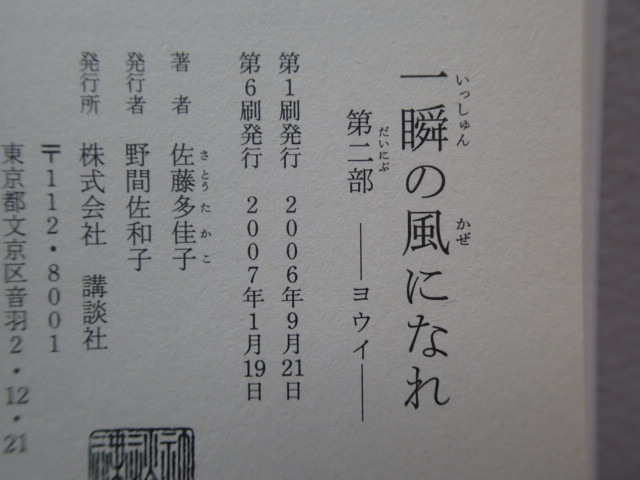 一瞬の風になれ
いっしゅん
かぜ
第二部 ――ヨウイ――
だいにぶ
第1刷発行 2006年9月21日
第6刷発行 2007年1月19日
著者 佐藤多佳子
さとうたかこ
発行者 野間佐和子
発行所 株式会社 講談社
〒112・8001
東京都文京区音羽2・12・21